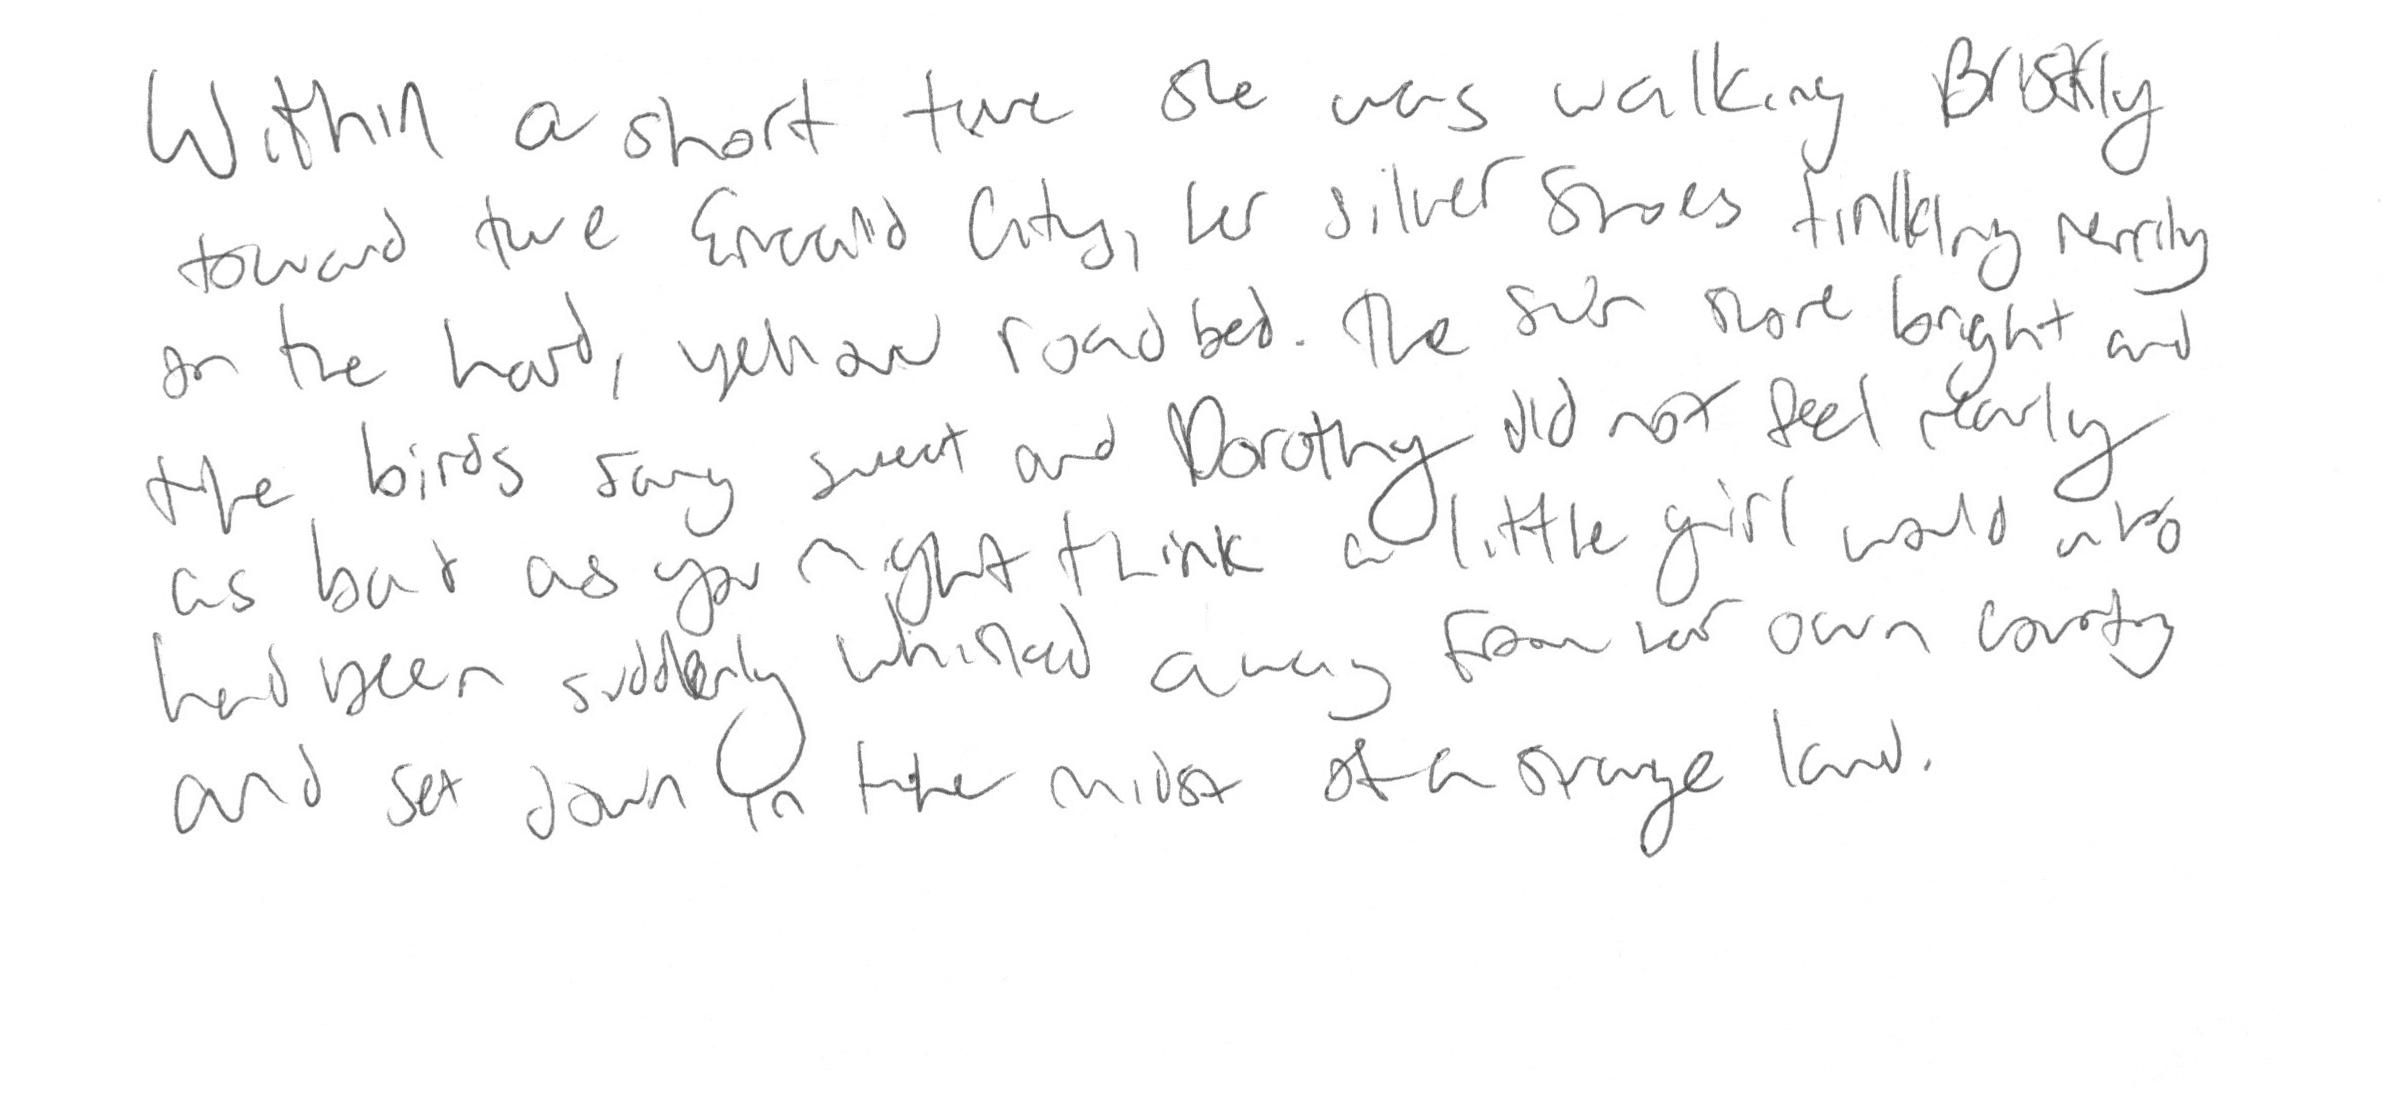 Within a short time she was walking Briskly
toward the Emerald City, her silver Shoes tinkling merrily
on the hard, yellow road bed. The sun shone bright and
the birds sang sweet and Dorothy did not feel nearly
as bad as you might think a little girl would who
had been suddenly whisked away from her own country
and set down in the midst of a strange land.